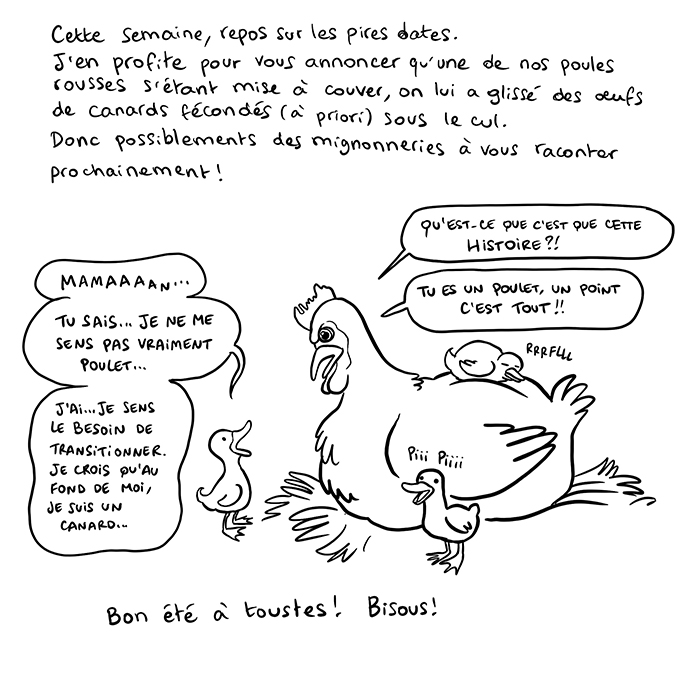 Cette semaine, repos sur les pires dates.
J'en profite pour vous annoncer qu'une de nos poules
rousses s'étant mise à couver, on lui a glissé des œufs
de canards fécondés (à priori) sous le cul.
Donc possiblements des mignonneries à vous raconter
prochainement!
QU'EST-CE QUE C'EST QUE CETTE
HISTOIRE?!!
TU ES UN POULET, UN POINT
C'EST TOUT!!
MAMAAAAN...
TU SAIS... JE NE ME
SENS PAS VRAIMENT
POULET...
J'AI...JE SENS
LE BESOIN DE
TRANSITIONNER.
JE CROIS QU'AU
FOND DE MOI,
JE SUIS UN
CANARD...
RRRFLLL
Piii Piiii
Bon été à toustes! Bisous!